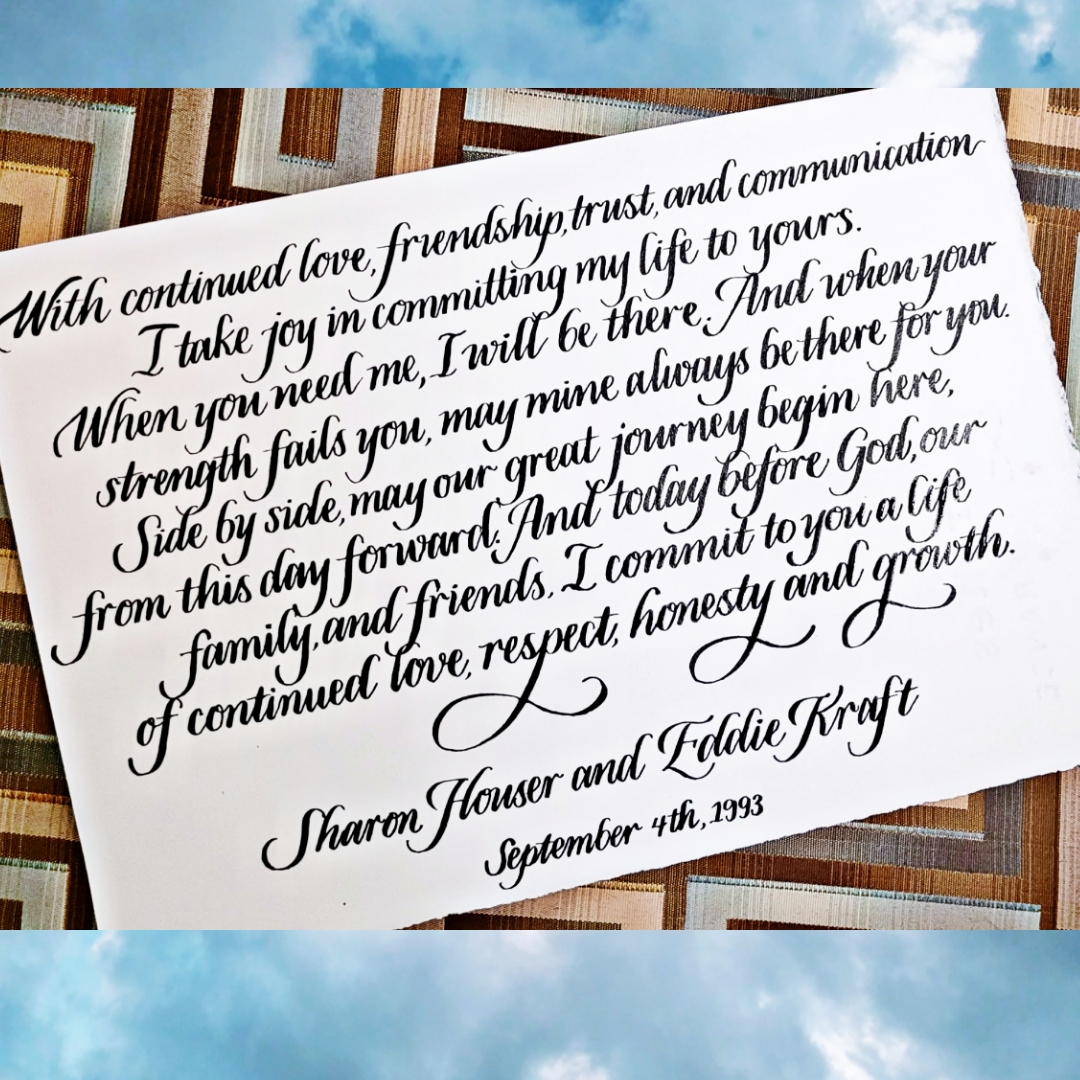 With continued love, friendship, trust, and communication
I take joy in committing my life to yours.
When you need me, I will be there. And when your
strength fails you, may mine always be there for you.
Side by side, may our great journey begin here,
from this day forward. And today before God, our
family, and friends, I commit to you a life
of continued love, respect, honesty and growth.
Sharon Houser and Eddie Kraft
September 4th, 1993